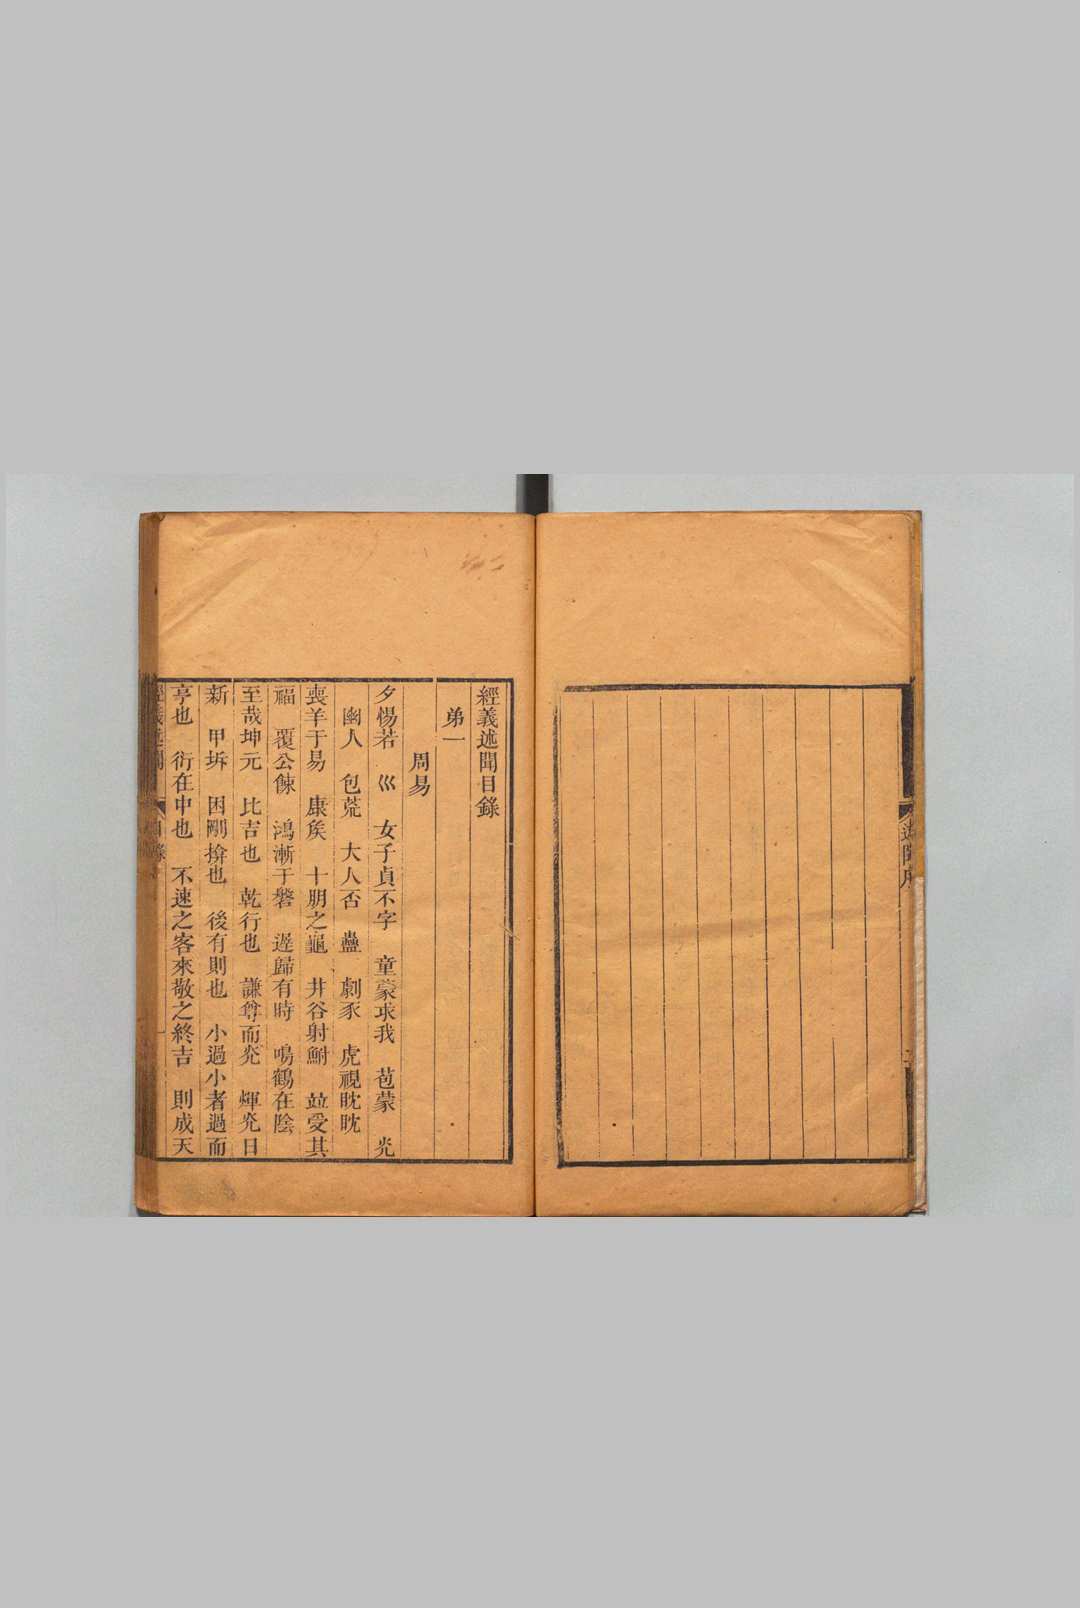 經義述聞目錄
弟一
周易
夕惕若　巛　女子貞不字　童蒙求我　苞蒙　光
幽人　包荒　大人否　蠱　劇豕　虎視眈眈
喪羊于易　康矦　十朋之龜　井谷射鮒　竝受其
福　覆公餗　鴻漸于磐　遲歸有時　鳴鶴在陰
至哉坤元　比吉也　乾行也　謙尊而光　煇光日
新　甲坼　困剛揜也　後有則也　小過小者過而
亨也　衍在中也　不速之客來敬之終吉　則成天
經義述聞　目錄　一
述聞序